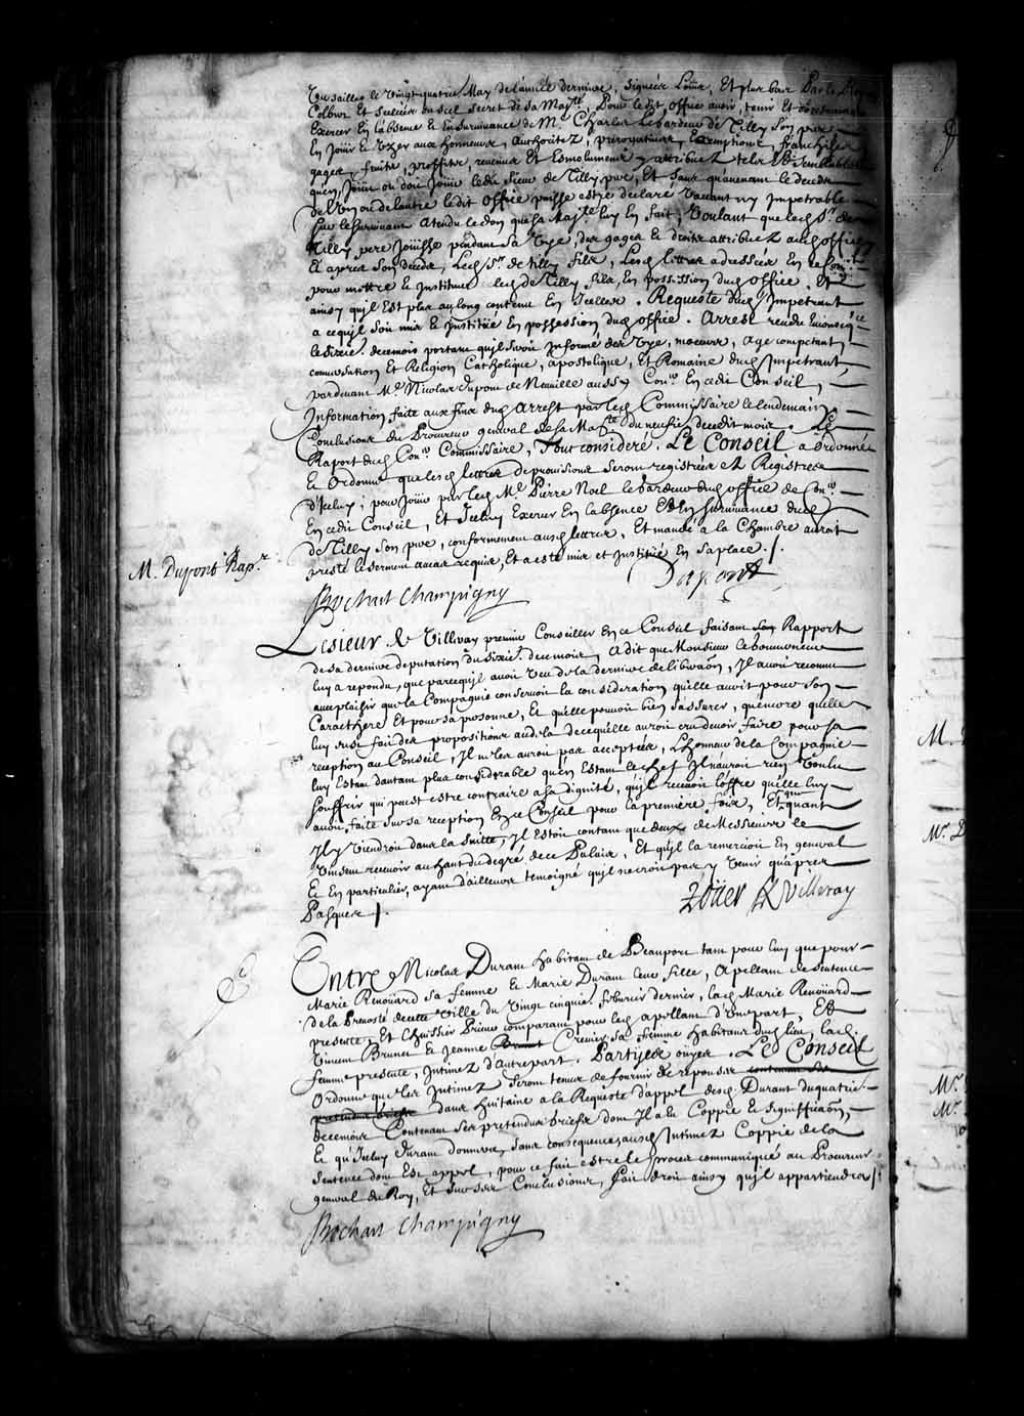 Versailles le Vingt quatre May de l'année derniere, Signées Louis, Et plus bas Par le Roy
Colbert Et scellées du scel secret de sa Maj.té, Pour le dit office avoir, tenir Et doresnavant
Exercer En l'absence Et En survivance de M.re Charles Lebardeux de Tilly Son pere
En Joüir Et Vzer aux honneurs, Authoritez, prerogatives, Exemptions, franchises
gages, fruits, proffits, revenus Et Esmolumens y attribuez tels Et semblables
qu'en Joüit ou doit Joüir led. sieur de Tilly pere, Et sans qu'avenant le deceds
de l'vn ou de l'autre le dit Office puisse estre declaré vacant ny Impetrable
par le survivant Atendu le don que sa Maj.té luy En fait, Voulant que led. S.r de
Tilly pere Joüisse pendant sa Vye, des gages Et droits attribuez aud. office
Et apres Son deceds, Led. S.r de tilly fils, Lesd. lettres adressées En ce Con.l
pour mettre Et Instituer led. de Tilly fils, En possession dud. office. Et
ainsy qu'il Est plus au long contenu En Icelles. Requeste dud. Impetrant
a ce qu'il soit mis Et Institüé En possession dud. office. Arrest rendu
le sixie. decemois portant qu'il seroit Informé des Vye, moeurs, age competant,
conversation Et Religion Catholique, apostolique, Et Romaine dud. Impetrant,
pardevant M.e Nicolas Dupont de Neuville aussy Con.er En cedit Conseil,
Information faite aux fins dud. Arrest par led. Commissaire le lendemain
Conclusions du Procureur general de sa Ma.té du neufie decedit mois. Le
Raport dud. Con.er Commissaire, Tout consideré. Le Conseil a Ordonné
Et Ordonne que lesd. lettres de provisions seront registrées ez Registres
d'Iceluy; pour Joüir par led. M.e Pierre Noel lebardeux dud. office de Con.er
En cedit Conseil, Et Iceluy Exercer En l'absence Et En survivance dud.
de Tilly Son pere, conformement ausd. lettres, Et mandé a la Chambre auroit
presté le serment au cas requis, Et a esté mis et Institüé En sa place./.
M. Dupont Rap.r
Dupont
Bochart Champigny
Lesieur de Villeray premier Conseiller En ce Conseil faisant son Rapport
de sa derniere deputation du Sixie. decemois, A dit que Monsieur le Gouverneur
luy a repondu, que parce qu'il avoit veu de la derniere deliberaõn, Il avoit reconnu
avec plaisir que la Compagnie conservoit la consideration qu'elle avoit pour son
Caracthere Et pour sa personne, Et qu'elle pouvoit bien s'assurer, qu'encore qu'elle
luy eust fait des propositions au dela de ce qu'elle auroit cru devoir faire pour sa
reception au Conseil, Il ne les auroit pas acceptées, L'honneur de la Compagnie
luy Estant d'autant plus considerable qu'en Estant le chef Il n'auroit rien Voulu
souffrir qui peust estre contraire a sa dignité, qu'il recevoit l'offre qu'elle luy
avoit faite sur sa reception En ce Conseil pour la premiere fois, Et que quant
Il y Viendroit dans la Suitte, Il estoit contant que deux de Messieurs le
Vinssent recevoir au haut du degré de ce Palais, Et qu'il la remercioit En general
Et En particulier, ayant d'ailleurs temoigné qu'il ne croit pas y Venir qu'apres
Pasques /.
Roüer de Villeray
Entre Nicolas Durant habitant de Beauport tant pour luy que pour
Marie Renoüard sa femme Et Marie Durant leur fille, Apellant de sentence
de la Prevosté de cette Ville du Vingt cinquie. febvrier dernier, lad. Marie Renoüard
presente, Et L'huissier Prieur comparant pour lesd. apellans d'Vne part, Et
Vincent Brunet Et Jeanne Crevier sa femme habitans dud. lieu, lad.
femme presente, Intimez d'autre part. Partyes ouyes. Le Conseil
Ordonne que les Intimez Seront tenus de fournir de reponses contenant ses
pretendus griefs dans huitaine a la Requeste d'appel desd. Durant du quatrie.
decemois Contenant Ses pretendus griefs dont Il a Eu Coppie Et signiffication,
Et qu'Iceluy Durant donnera, sans consequence, ausd. Intimez Coppie de la
Sentence dont Est appel, pour ce fait estre le procez communiqué au Procureur
general du Roy, Et sur ses Conclusions, fait droit ainsy qu'il appartiendra /.
Bochart Champigny
M.
M.r D
M.r
M.r